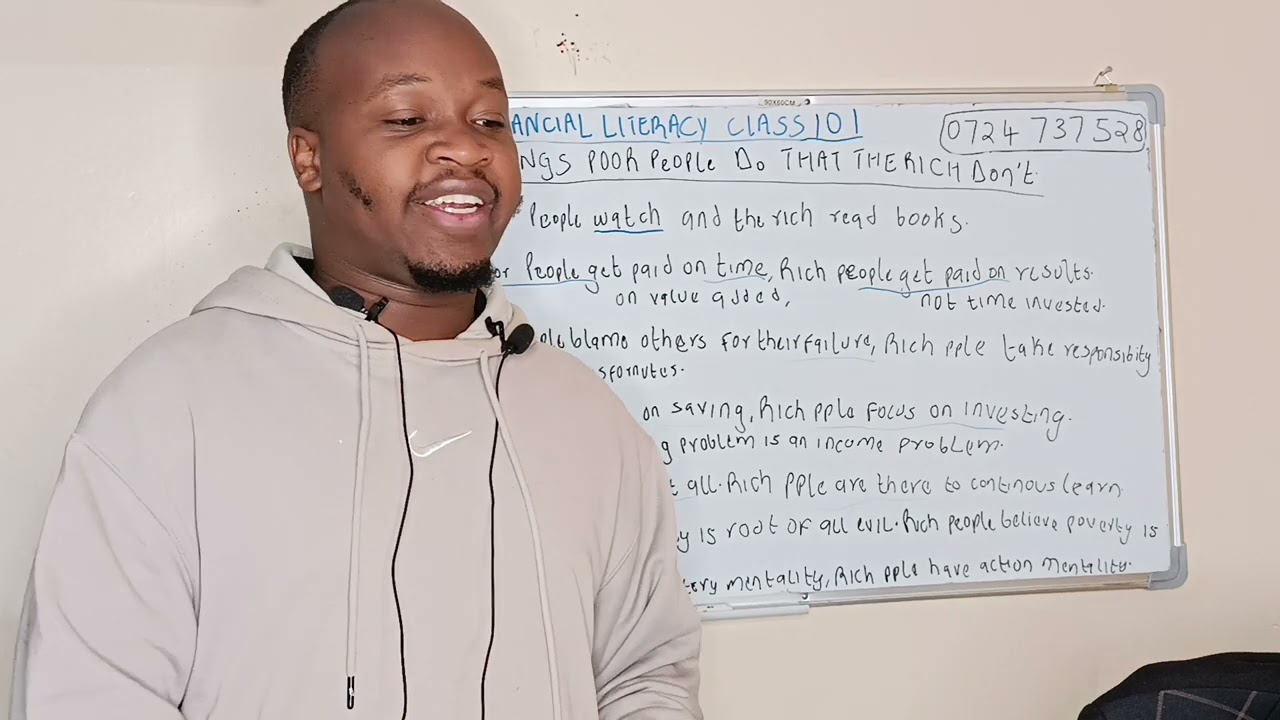 90X60CM
ANCIAL LITERACY CLASS 101
0724 737 528
NGS POOR PEOPLE DO THAT THE RICH DON'T
People watch and the rich read books.
or People get paid on time, Rich people get paid on results.
on value added, not time invested.
ple blame others for their failure, Rich pple take responsibity
sfornutes.
on saving, Rich pple focus on investing.
g problem is an income problem.
t all. Rich pple are there to continous learn
y is root of all evil. Rich people believe poverty is
tery mentality, Rich pple have action mentality.